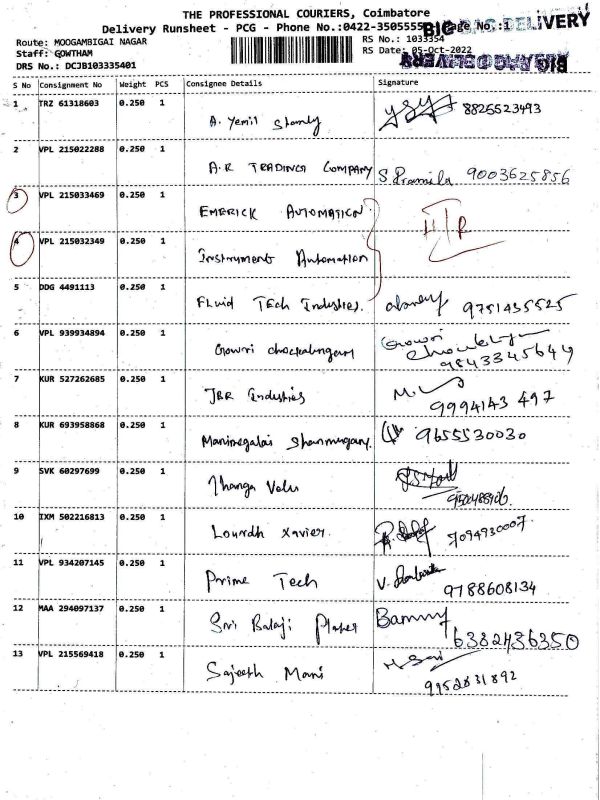 THE PROFESSIONAL COURIERS, Coimbatore
Delivery Runsheet - PCG - Phone No.:0422-3505555 Page No.:1
BIG BAG DELIVERY
Route: MOOGAMBIGAI NAGAR RS No.: 1033354
Staff: GOWTHAM RS Date: 05-Oct-2022
DRS No.: DCJB103335401
BIG BAG DELIVERY
S No Consignment No Weight PCS Consignee Details Signature
1 TRZ 61318603 0.250 1 A. Yemil Stanly 8825523493
2 VPL 215022288 0.250 1 A.R TRADING COMPANY S. Pramila 9003625856
3 VPL 215033469 0.250 1 EMERICK AUTOMATION
4 VPL 215032349 0.250 1 Instrument Automation
5 DDG 4491113 0.250 1 Fluid Tech Industries. 9751435525
6 VPL 939934894 0.250 1 Gowri chockalingam Gowri
9843345649
7 KUR 527262685 0.250 1 JBR Industries
9994143 497
8 KUR 693958868 0.250 1 Manimegalai Shanmugam. 9655530030
9 SVK 60297699 0.250 1 Thanga Velu
10 IXM 502216813 0.250 1 Lourdh Xavier. 7094930007.
11 VPL 934207145 0.250 1 Prime Tech
9788608134
12 MAA 294097137 0.250 1 Sri Balaji
6382436350
13 VPL 215569418 0.250 1 Sajeeth Mani
9952831892